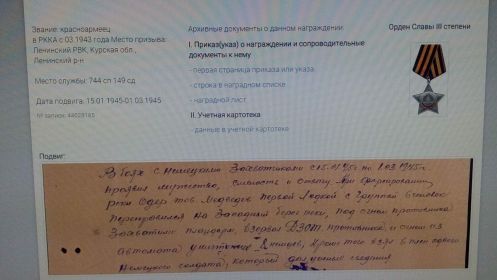 Звание: красноармеец
в РККА с 03.1943 года Место призыва:
Ленинский РВК, Курская обл.,
Ленинский р-н
Место службы: 744 сп 149 сд
Дата подвига: 15.01.1945-01.03.1945
№ записи: 44029165
Архивные документы о данном награждении:
I. Приказ(указ) о награждении и сопроводительные
документы к нему
- первая страница приказа или указа
- строка в наградном списке
- наградной лист
II. Учетная картотека
- данные в учетной картотеке
Орден Славы III степени
Подвиг:
В боях с Немецкими Захватчиками с 15.01.45г по 1.03.1945г.
проявил мужество, смелость и отвагу. При форсировании
реки Одер тов. Медведев первой лодкой с Группой
Переправился на Западный берег реки, под огнем противника
Захватили плацдарм, взорвал ДЗОТ противника и огнем из
автомата немцев, Кроме того взял в плен одного
Немецкого солдата, который дал ценные сведения